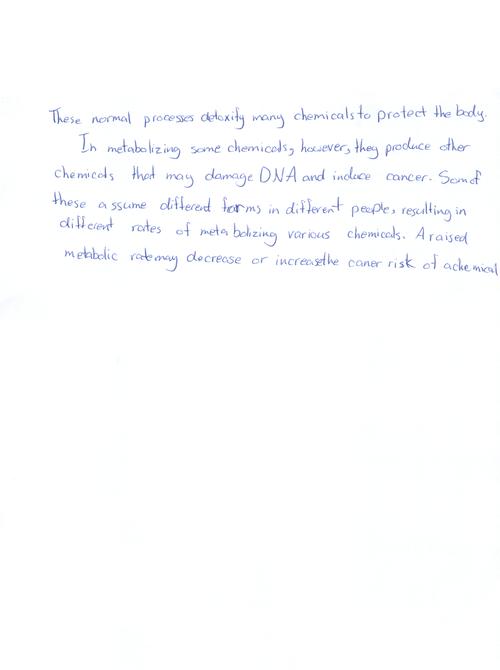 These normal processes detoxify many chemicals to protect the body.
In metabolizing some chemicals, however, they produce other
chemicals that may damage DNA and induce cancer. Som of
these assume different forms in different people, resulting in
different rates of metabolizing various chemicals. A raised
metabolic rate may decrease or increase the caner risk of a chemical